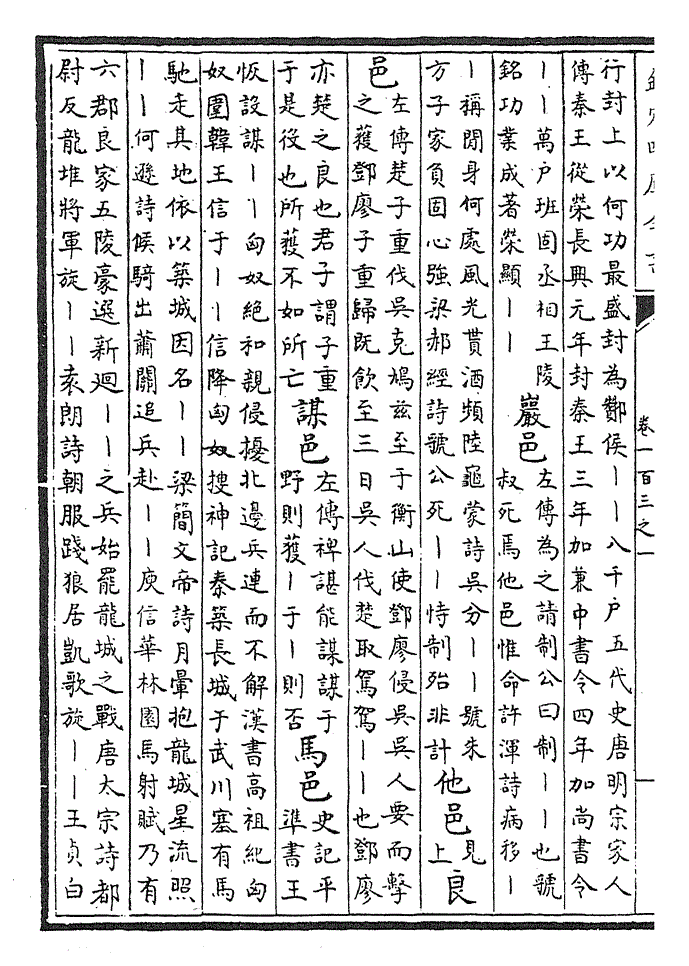 欽定四庫全書
卷一百三之一
行封上以何功最盛封為酇侯丨丨八千户五代史唐明宗家人
傳秦王從榮長興元年封秦王三年加兼中書令四年加尚書令
丨丨萬户班固丞相王陵
銘功業成著榮顯丨丨
巖邑
左傳為之請制公曰制丨丨也虢
叔死焉他邑惟命許渾詩病移丨
丨稱閒身何處風光貰酒頻陸龜蒙詩吳分丨丨號朱
方子家負固心強梁郝經詩虢公死丨丨恃制殆非計
他邑
見
上
良
邑
左傳楚子重伐吳克鳩兹至于衡山使鄧廖侵吳吳人要而擊
之獲鄧廖子重歸既飲至三日吳人伐楚取駕駕丨丨也鄧廖
亦楚之良也君子謂子重
于是役也所獲不如所亡
謀邑
左傳裨諶能謀謀于
野則獲丨于丨則否
馬邑
史記平
準書王
恢設謀丨丨匈奴絶和親侵擾北邊兵連而不解漢書高祖紀匈
奴圍韓王信于丨丨信降匈奴搜神記秦築長城于武川塞有馬
馳走其地依以築城因名丨丨梁簡文帝詩月暈抱龍城星流照
丨丨何遜詩候騎出蕭關追兵赴丨丨庾信華林園馬射賦乃有
六郡良家五陵豪選新迴丨丨之兵始罷龍城之戰唐太宗詩都
尉反龍堆將軍旋丨丨袁朗詩朝服踐狼居凱歌旋丨丨王貞白